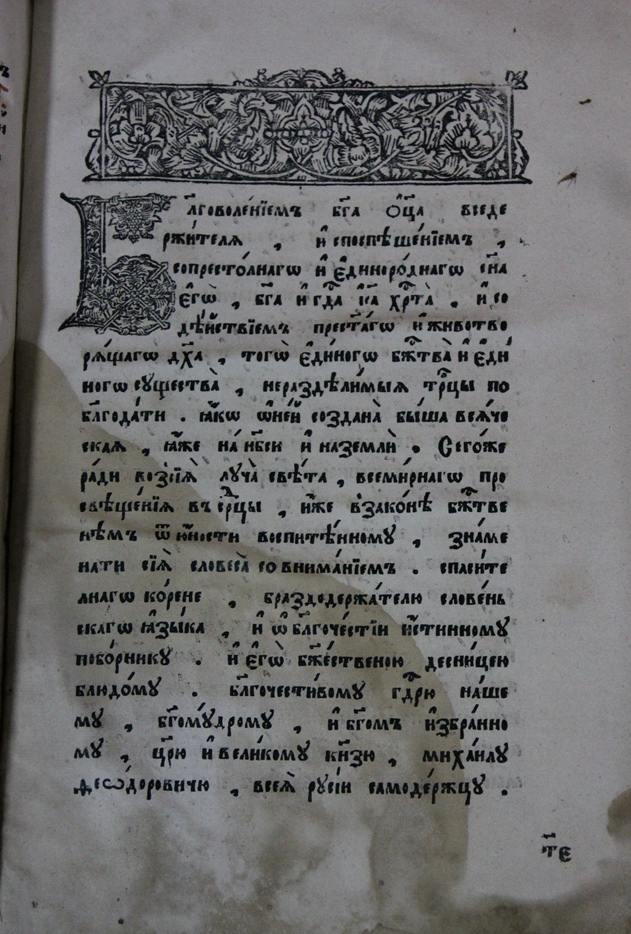 Бл҃говоле́нїемъ бг҃а ѻ҆ц҃а вседе
ржи́телѧ , и҆ споспѣше́нїемъ ,
сопресто́лнагѡ и҆ є҆диноро́днагѡ сн҃а
є҆гѡ̀ , бг҃а и҆ гдⷭ҇а і҆с҃а хрⷭ҇та̀ . и҆ со
дѣ́йствїемъ прест҃а́гѡ и҆ животво
рѧ́щагѡ дх҃а , тогѡ̀ є҆ди́ногѡ бжⷭ҇тва̀ и҆ є҆ди́
ногѡ существа̀ , нераздѣли́мыѧ трⷪ҇цы по
бл҃года́ти . ꙗ҆́кѡ ѿ не́й создана̀ бы́ша всѧ́че
скаѧ , ꙗ҆̀же на нб҃си и҆ на землѝ . Сегѡ́же
ра́ди возсїѧ̀ луча̀ свѣ́та , всемі́рнагѡ про
свѣще́нїѧ въ срⷣцы , и҆́же в зако́нѣ бжⷭ҇тве
нѣмъ ѿ ю҆́ности воспите́нному , зна́ме
нати сїѧ̀ словеса̀ со внима́нїемъ . спаси́те
лнагѡ ко́рене , браздодержа́телю слове́нь
скагѡ ꙗ҆зы́ка , и҆ ѡ҆ бл҃гоче́стїи и҆́стинному
побо́рнику . и҆ є҆гѡ̀ бж҃е́ственою десни́цею
блюдо́му . бл҃гочести́вому гдⷭ҇рю на́ше
му , бг҃ому́дрому , и҆ бг҃омъ и҆збра́нно
му , цр҃ю и҆ вели́кому кн҃зю , миха́илу
ѳео́дѡровичю , всеѧ̀ русі́и самоде́ржцу .
тⷭ҇е